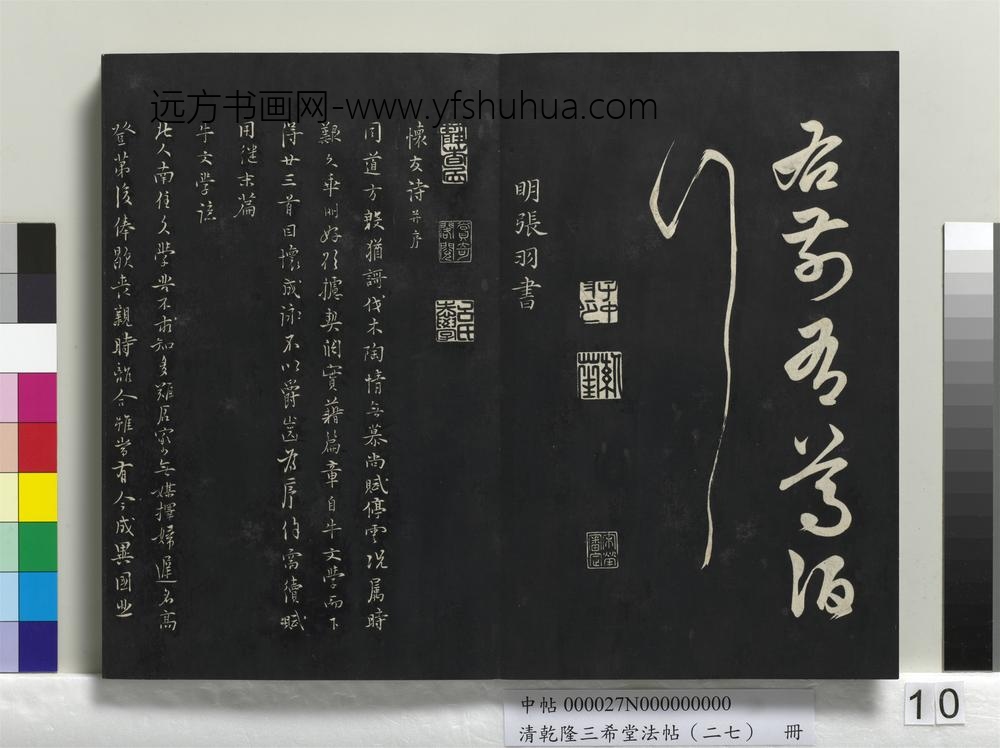 远方书画网-www.yfshuhua.com
右前有尊酒
行
明張羽書
懷友诗并序
同道方數猶謌伐木陶情無慕尚賦停雲況属時
艱久乖朋好 契闊實藉篇章自牛文學而下
得廿三首 懷成詠不以爵齒為序 寫續賦
用继末篇
牛文學諒
此人南住久學業不求知多難居家無媒擇婦遲名高
登第後俸歇喪親時離合雖常有今成異國悲
中帖 000027N000000000
清乾隆三希堂法帖（二七） 冊
10